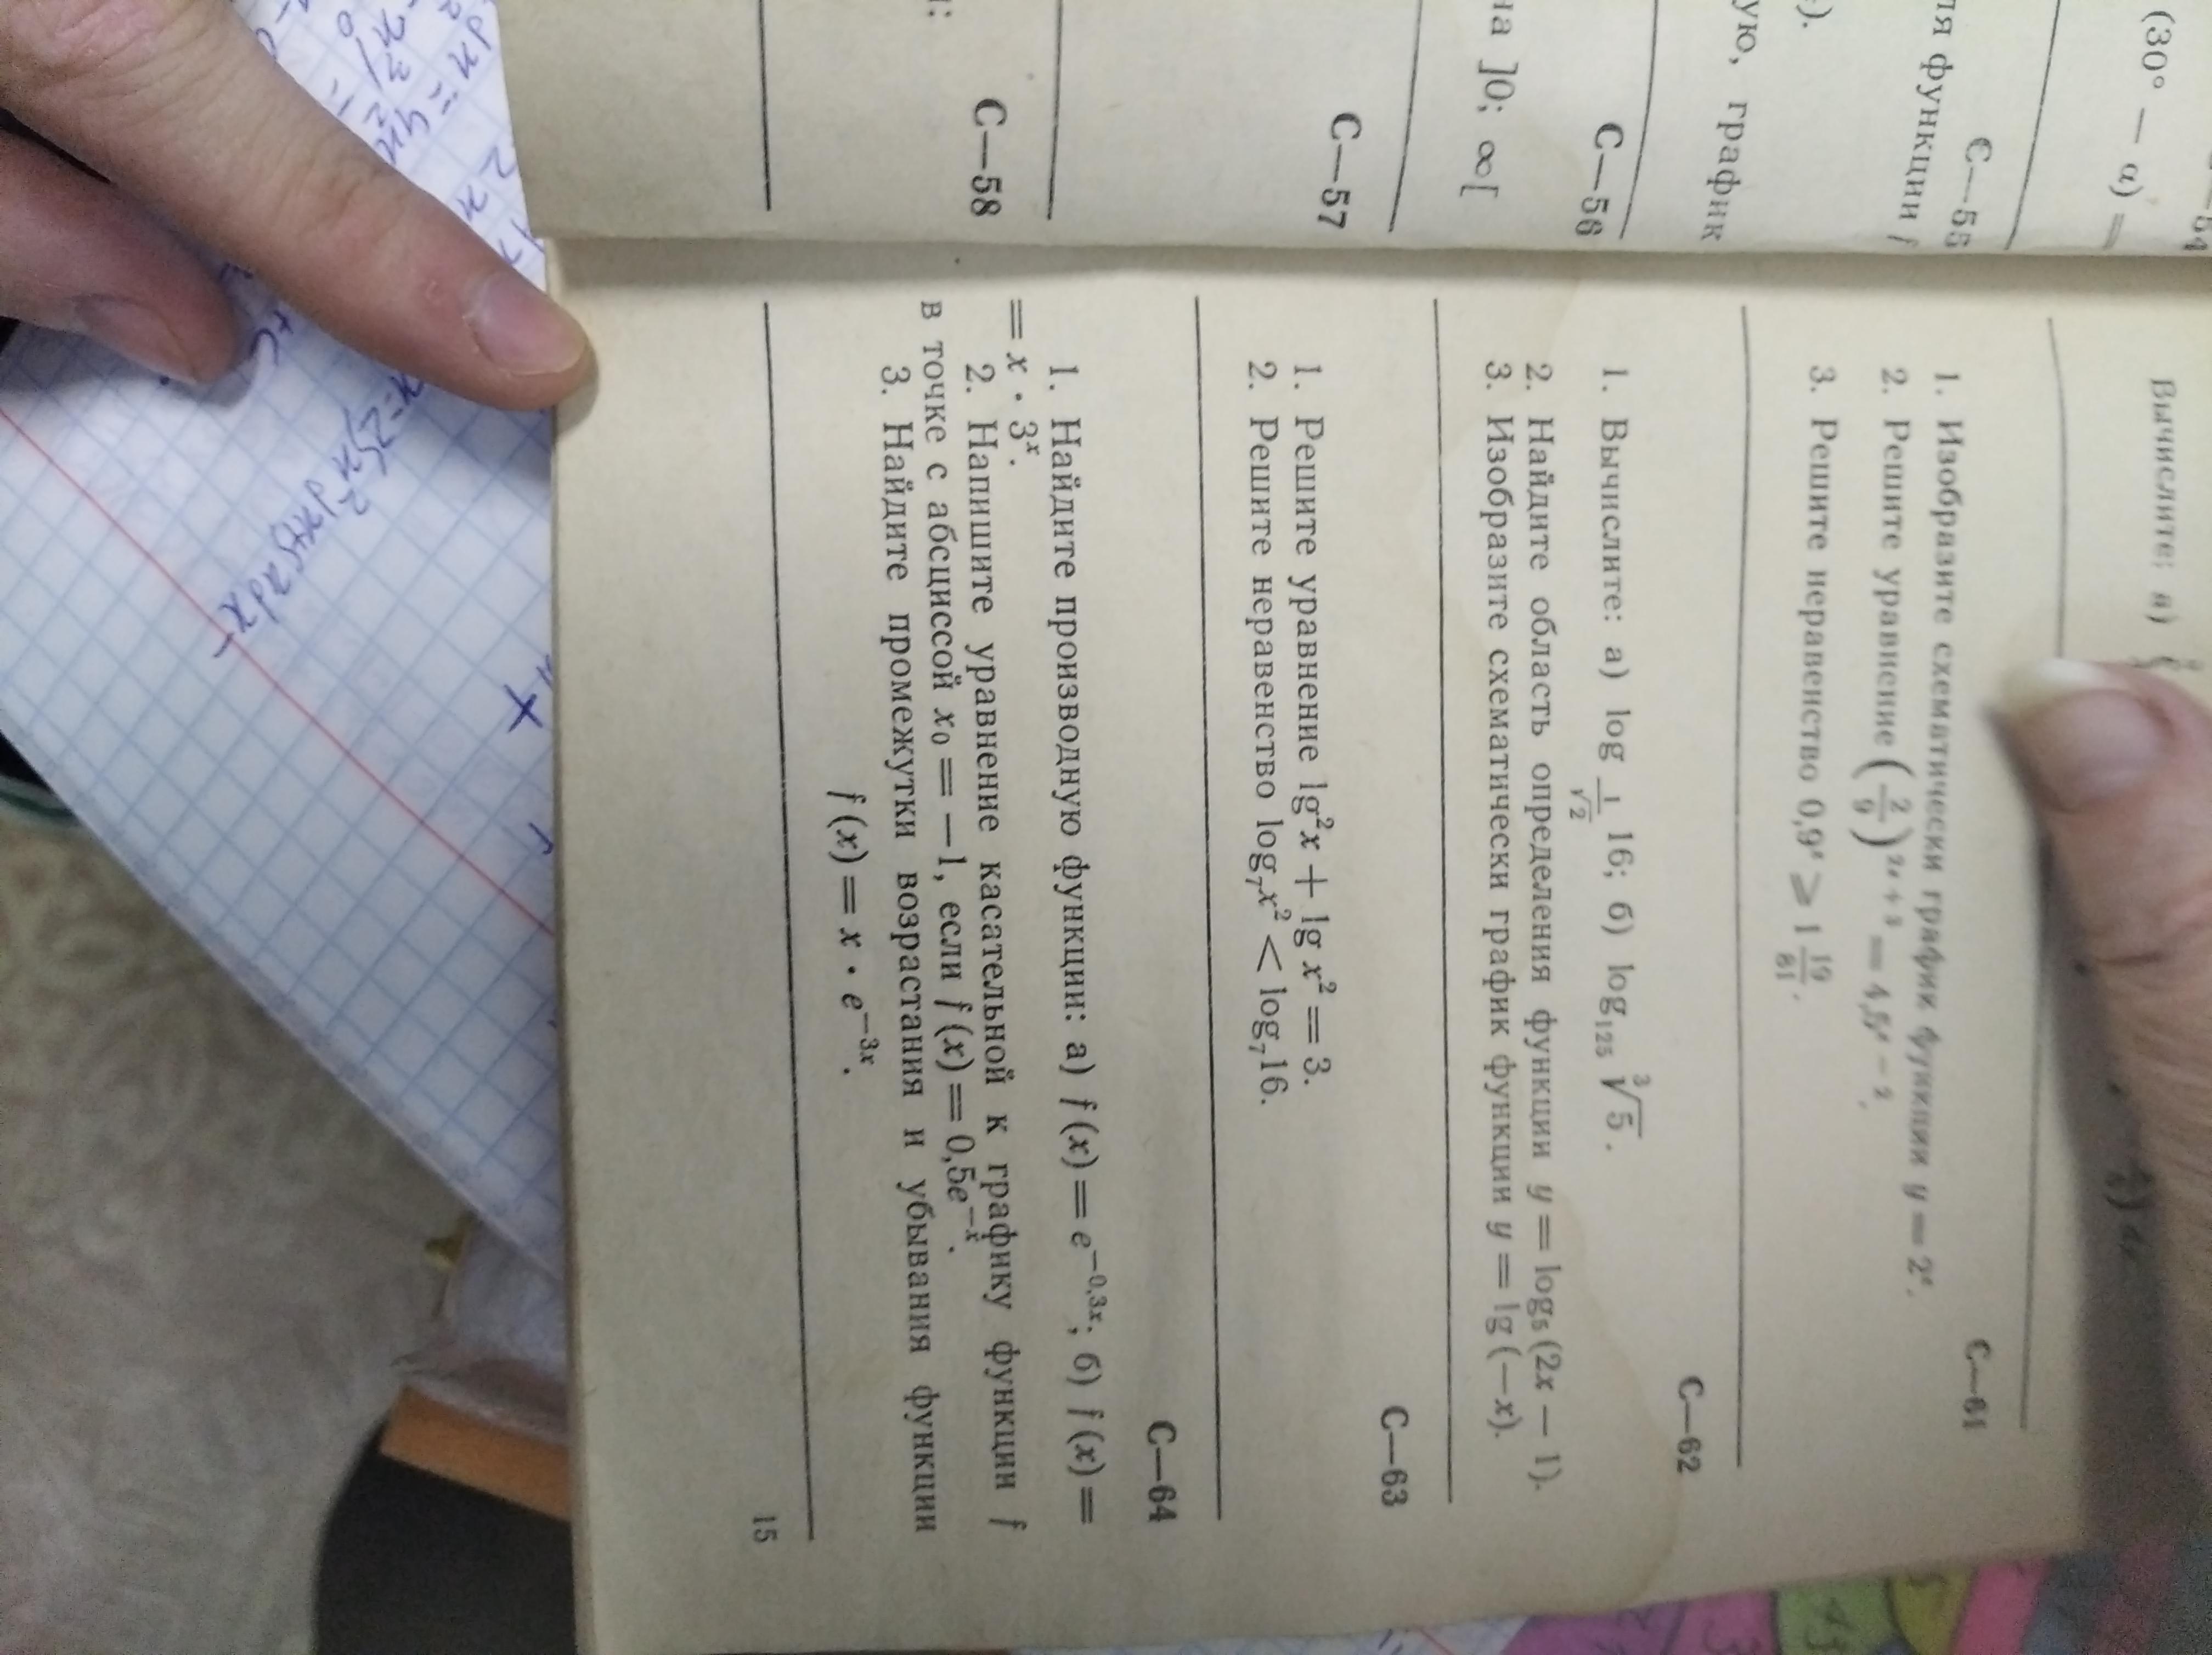 (30° — α) =
С—55
ля функции f
ую, график
С—56
на ]0; ∞[
С—57
С—58
Вычислите: а)
С—61
1. Изобразите схематически график функции y = 2ˣ.
2. Решите уравнение (2/9)²ˣ⁺³ = 4,5ˣ⁻².
3. Решите неравенство 0,9ˣ ⩾ 1 19/81.
С—62
1. Вычислите: а) log_{1/√2} 16; б) log₁₂₅ ∛5.
2. Найдите область определения функции y = log₅ (2x — 1).
3. Изобразите схематически график функции y = lg (—x).
С—63
1. Решите уравнение lg²x + lg x² = 3.
2. Решите неравенство log₇x² < log₇16.
С—64
1. Найдите производную функции: а) f (x) = e^{—0,3x}; б) f (x) =
= x · 3ˣ.
2. Напишите уравнение касательной к графику функции f
в точке с абсциссой x₀ = —1, если f (x) = 0,5e^{—x}.
3. Найдите промежутки возрастания и убывания функции
f (x) = x · e^{—3x}.
15